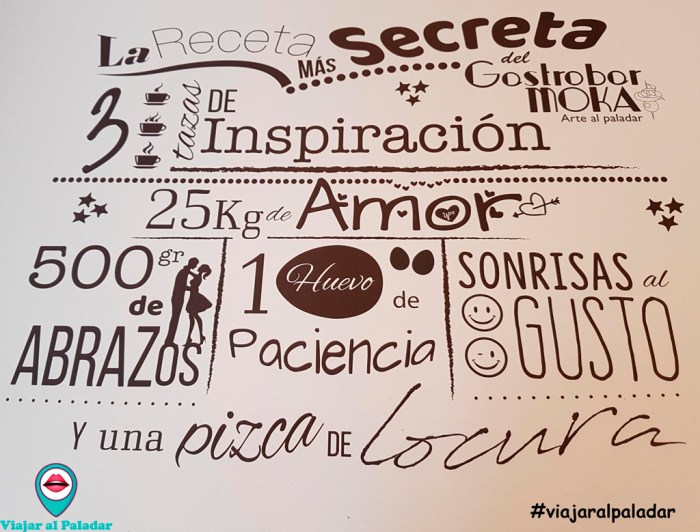 La Receta MÁS Secreta
del
Gastrobar
MOKA
Arte al paladar
3 tazas DE
Inspiración
25Kg de Amor
You
500 gr
de
ABRAZOS
1 Huevo de
Paciencia
SONRISAS al
GUSTO
Y una pizca DE Locura
Viajar al Paladar
#viajaralpaladar